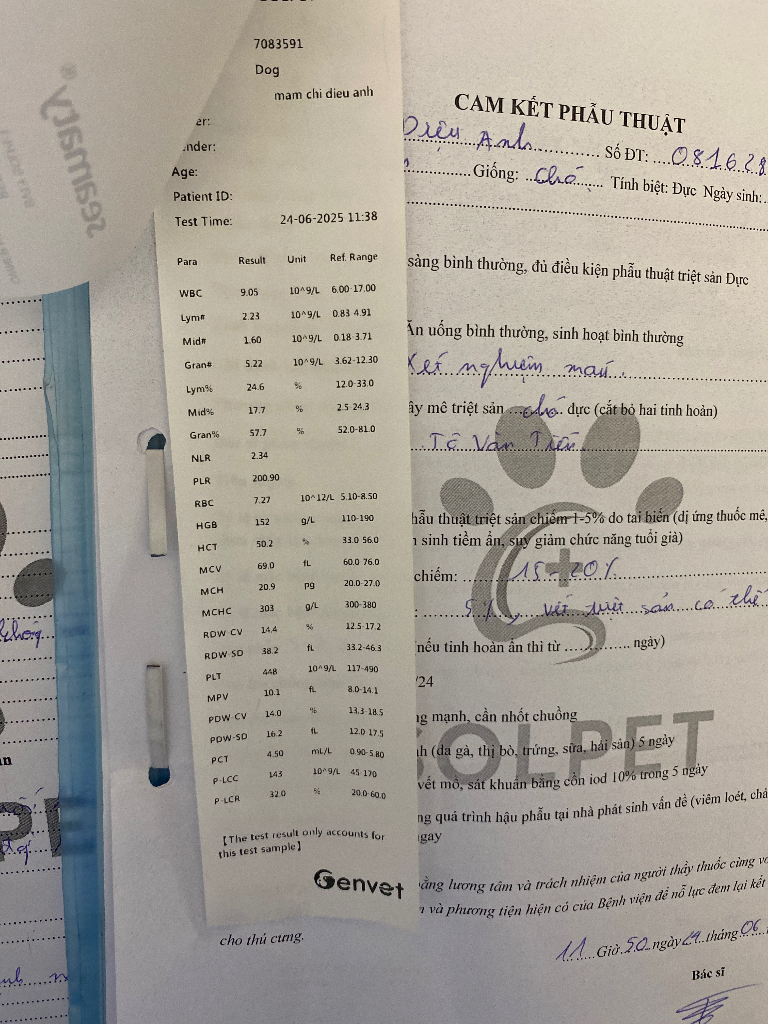 7083591
Dog
mam chi dieu anh
er:
nder:
Age:
Patient ID:
Test Time: 24-06-2025 11:38
Para Result Unit Ref. Range
WBC 9.05 10^9/L 6.00-17.00
Lym# 2.23 10^9/L 0.83-4.91
Mid# 1.60 10^9/L 0.18-3.71
Gran# 5.22 10^9/L 3.62-12.30
Lym% 24.6 % 12.0-33.0
Mid% 17.7 % 2.5-24.3
Gran% 57.7 % 52.0-81.0
NLR 2.34
PLR 200.90
RBC 7.27 10^12/L 5.10-8.50
HGB 152 g/L 110-190
HCT 50.2 % 33.0-56.0
MCV 69.0 fL 60.0-76.0
MCH 20.9 pg 20.0-27.0
MCHC 303 g/L 300-380
RDW-CV 14.4 % 12.5-17.2
RDW-SD 38.2 fL 33.2-46.3
PLT 448 10^9/L 117-490
MPV 10.1 fL 8.0-14.1
PDW-CV 14.0 % 13.3-18.5
PDW-SD 16.2 fL 12.0-17.5
PCT 4.50 mL/L 0.90-5.80
P-LCC 143 10^9/L 45-170
P-LCR 32.0 % 20.0-60.0
[The test result only accounts for
this test sample]
Genvet
seamaty
CAM KẾT PHẪU THUẬT
Diệu Anh Số ĐT: 081628
Giống: chó Tính biệt: Đực Ngày sinh:
sàng bình thường, đủ điều kiện phẫu thuật triệt sản Đực
Ăn uống bình thường, sinh hoạt bình thường
xét nghiệm máu
ây mê triệt sản chó đực (cắt bỏ hai tinh hoàn)
Tô Văn Tiến
hẫu thuật triệt sản chiếm 1-5% do tai biến (dị ứng thuốc mê,
sinh tiềm ẩn, suy giảm chức năng tuổi già)
chiếm: 15-20%
: 5% vết triệt sản có thể
nếu tinh hoàn ẩn thì từ ngày)
/24
ng mạnh, cần nhốt chuồng
nh (da gà, thị bò, trứng, sữa, hải sản) 5 ngày
vết mổ, sát khuẩn bằng cồn iod 10% trong 5 ngày
ng quá trình hậu phẫu tại nhà phát sinh vấn đề (viêm loét,
ngay
OLPET
ằng lương tâm và trách nhiệm của người thầy thuốc cùng
và phương tiện hiện có của Bệnh viện để nỗ lực đem lại kết
cho thú cưng.
11 Giờ 50 ngày 24 tháng 06
Bác sĩ